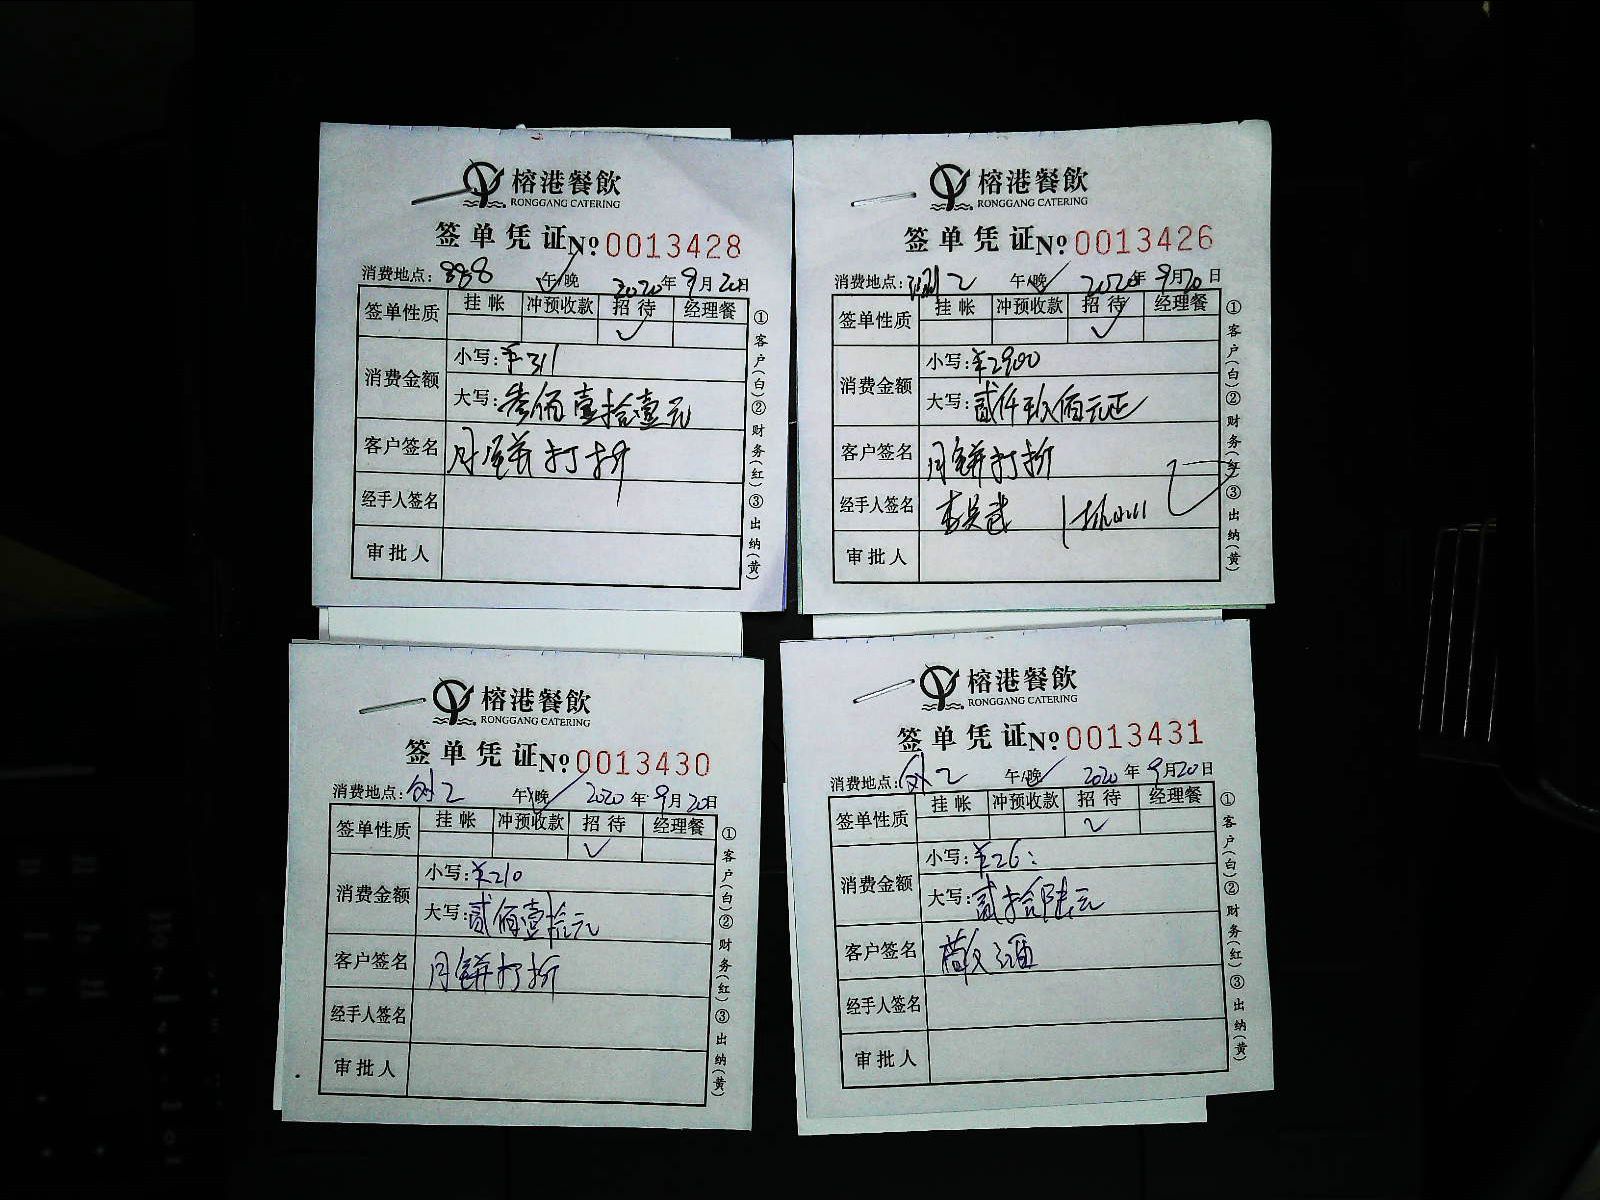 榕港餐飲
RONGGANG CATERING
签单凭证 Nº 0013428
消费地点: 888 午/晚 2020年9月20日
签单性质 挂帐 冲预收款 招待 经理餐
✓
消费金额 小写: ¥311
大写: 叁佰壹拾壹元
客户签名 月饼打折
经手人签名
审批人
①客户(白)②财务(红)③出纳(黄)
榕港餐飲
RONGGANG CATERING
签单凭证 Nº 0013426
消费地点: 2 午/晚 2020年9月20日
签单性质 挂帐 冲预收款 招待 经理餐
✓
消费金额 小写: ¥2900
大写: 贰仟玖佰元正
客户签名 月饼打折
经手人签名
审批人
①客户(白)②财务(红)③出纳(黄)
榕港餐飲
RONGGANG CATERING
签单凭证 Nº 0013430
消费地点: 外2 午/晚 2020年9月20日
签单性质 挂帐 冲预收款 招待 经理餐
✓
消费金额 小写: ¥210
大写: 贰佰壹拾元
客户签名 月饼打折
经手人签名
审批人
①客户(白)②财务(红)③出纳(黄)
榕港餐飲
RONGGANG CATERING
签单凭证 Nº 0013431
消费地点: 外2 午/晚 2020年9月20日
签单性质 挂帐 冲预收款 招待 经理餐
✓
消费金额 小写: ¥26:
大写: 贰拾陆元
客户签名 敬酒
经手人签名
审批人
①客户(白)②财务(红)③出纳(黄)